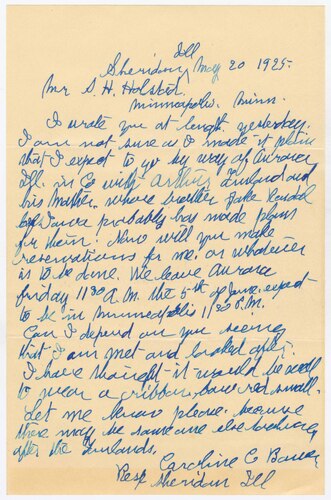 Ill
Sheridan, May 20 1925.
Mr S. H. Holstad.
Minneapolis. Minn.
I wrote you at length yesterday.
I am not sure as I made it plain
that I expect to go by way of Aurora
Ill. in Co with Arthur and
his Mother, whose brother Jake
of Iowa probably has made plans
for them: Now will you make
reservations for me. or whatever
is to be done. We leave Aurora
friday 1130 A.M. the 5th of June. expect
to be in Minneapolis 1130 P.M.
Can I depend on you seeing
that I am met and looked after.
I have thought it would be well
to wear a ribbon, bow red small.
Let me know please. because
there may be someone else looking
after the
Caroline C.
Resp Sheridan Ill